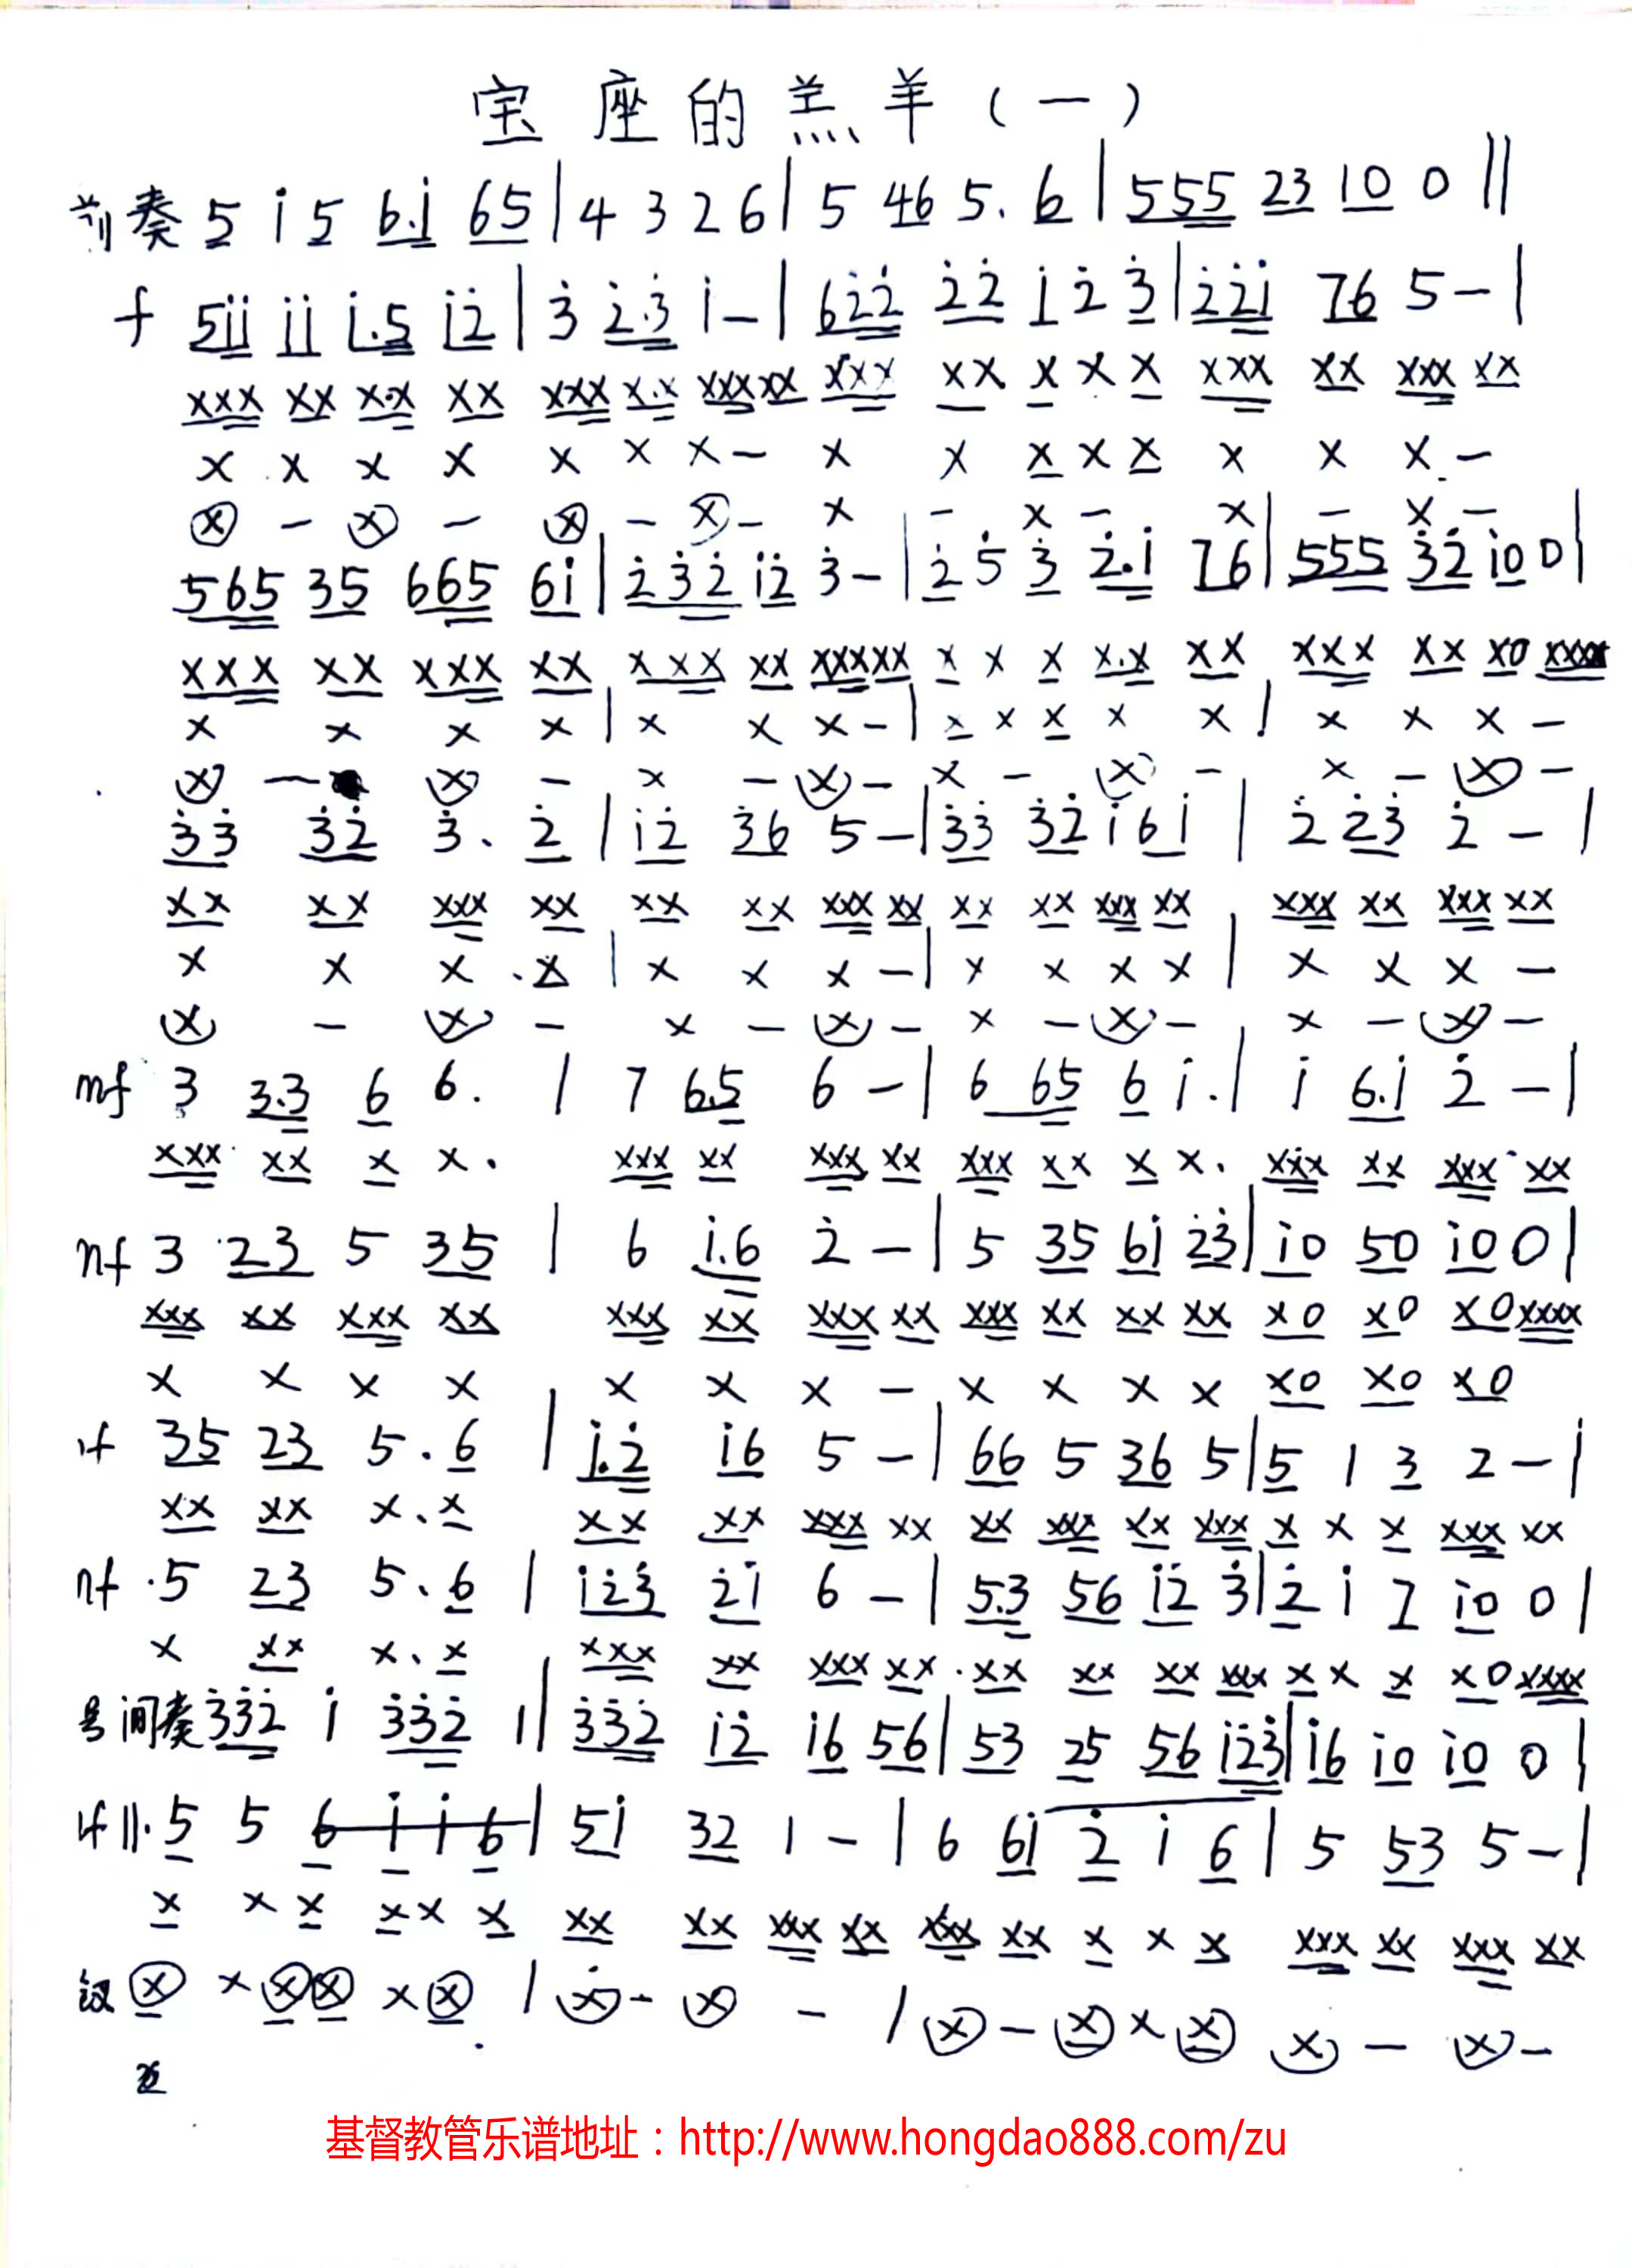 宝座的羔羊(一)
前奏 5 i 5 6.i 65 | 4 3 2 6 | 5 46 5. 6 | 555 23 10 0 ||
f 5ii ii i.5 i2̇ | 3̇ 2̇.3̇ i – | 62̇2̇ 2̇2̇ i 2̇ 3̇ | 2̇2̇i 76 5 – |
xxx xx x.x xx xxx x.x xxx xx xxx xx x x x xxx xx xxx xx
x x x x x x x – x x x x x x x x –
ⓧ – ⓧ – ⓧ – ⓧ – x – x – x – x –
565 35 665 6i | 2̇3̇2̇ i2̇ 3̇ – | 2̇ 5̇ 3̇ 2̇.i 76 | 555 3̇2̇ i0 0 |
xxx xx xxx xx xxx xx xxx xx x x x x.x xx xxx xx x0 xxxx
x x x x | x x x – | x x x x x | x x x –
ⓧ – ⓧ – x – ⓧ – x – ⓧ – x – ⓧ –
3̇3̇ 3̇2̇ 3̇. 2̇ | i2̇ 3̇6 5 – | 3̇3̇ 3̇2̇ i 6i | 2̇ 2̇3̇ 2̇ – |
xx xx xxx xx xx xx xxx xx xx xx xxx xx xxx xx xxx xx
x x x . x | x x x – | x x x x | x x x –
ⓧ – ⓧ – x – ⓧ – x – ⓧ – x – ⓧ –
mf 3 3.3 6 6. | 7 6.5 6 – | 6 65 6 i. | i 6.i 2̇ – |
xxx xx x x. xxx xx xxx xx xxx xx x x. xxx xx xxx xx
mf 3 23 5 35 | 6 i.6 2̇ – | 5 35 6i 2̇3̇ | i0 50 i0 0 |
xxx xx xxx xx xxx xx xxx xx xxx xx xx xx x0 x0 x0 xxxx
x x x x x x x – x x x x x0 x0 x0
35 23 5. 6 | i.2̇ i6 5 – | 66 5 36 5 | 5 1 3 2 – |
xx xx x. x xx xx xxx xx xx xxx xx xxx x x x xxx xx
5 23 5. 6 | i2̇3̇ 2̇i 6 – | 5.3 56 i2̇ 3̇ | 2̇ i 7 i0 0 |
x xx x. x xxx xx xxx xx xx xx xx xxx x x x x0 xxxx
号间奏 3̇3̇2̇ i 3̇3̇2̇ 1 | 3̇3̇2̇ i2̇ i6 56 | 53 25 56 i2̇3̇ | i6 i0 i0 0 |
||: 5 5 6 i i 6 | 5i 32 1 – | 6 6i 2̇ i 6 | 5 53 5 – |
x x x x x x xx xx xxx xx xxx xx x x x xxx xx xxx xx
ⓧ x ⓧ ⓧ x ⓧ | ⓧ – ⓧ – | ⓧ – ⓧ x ⓧ ⓧ – ⓧ –
基督教管乐谱地址：http://www.hongdao888.com/zu